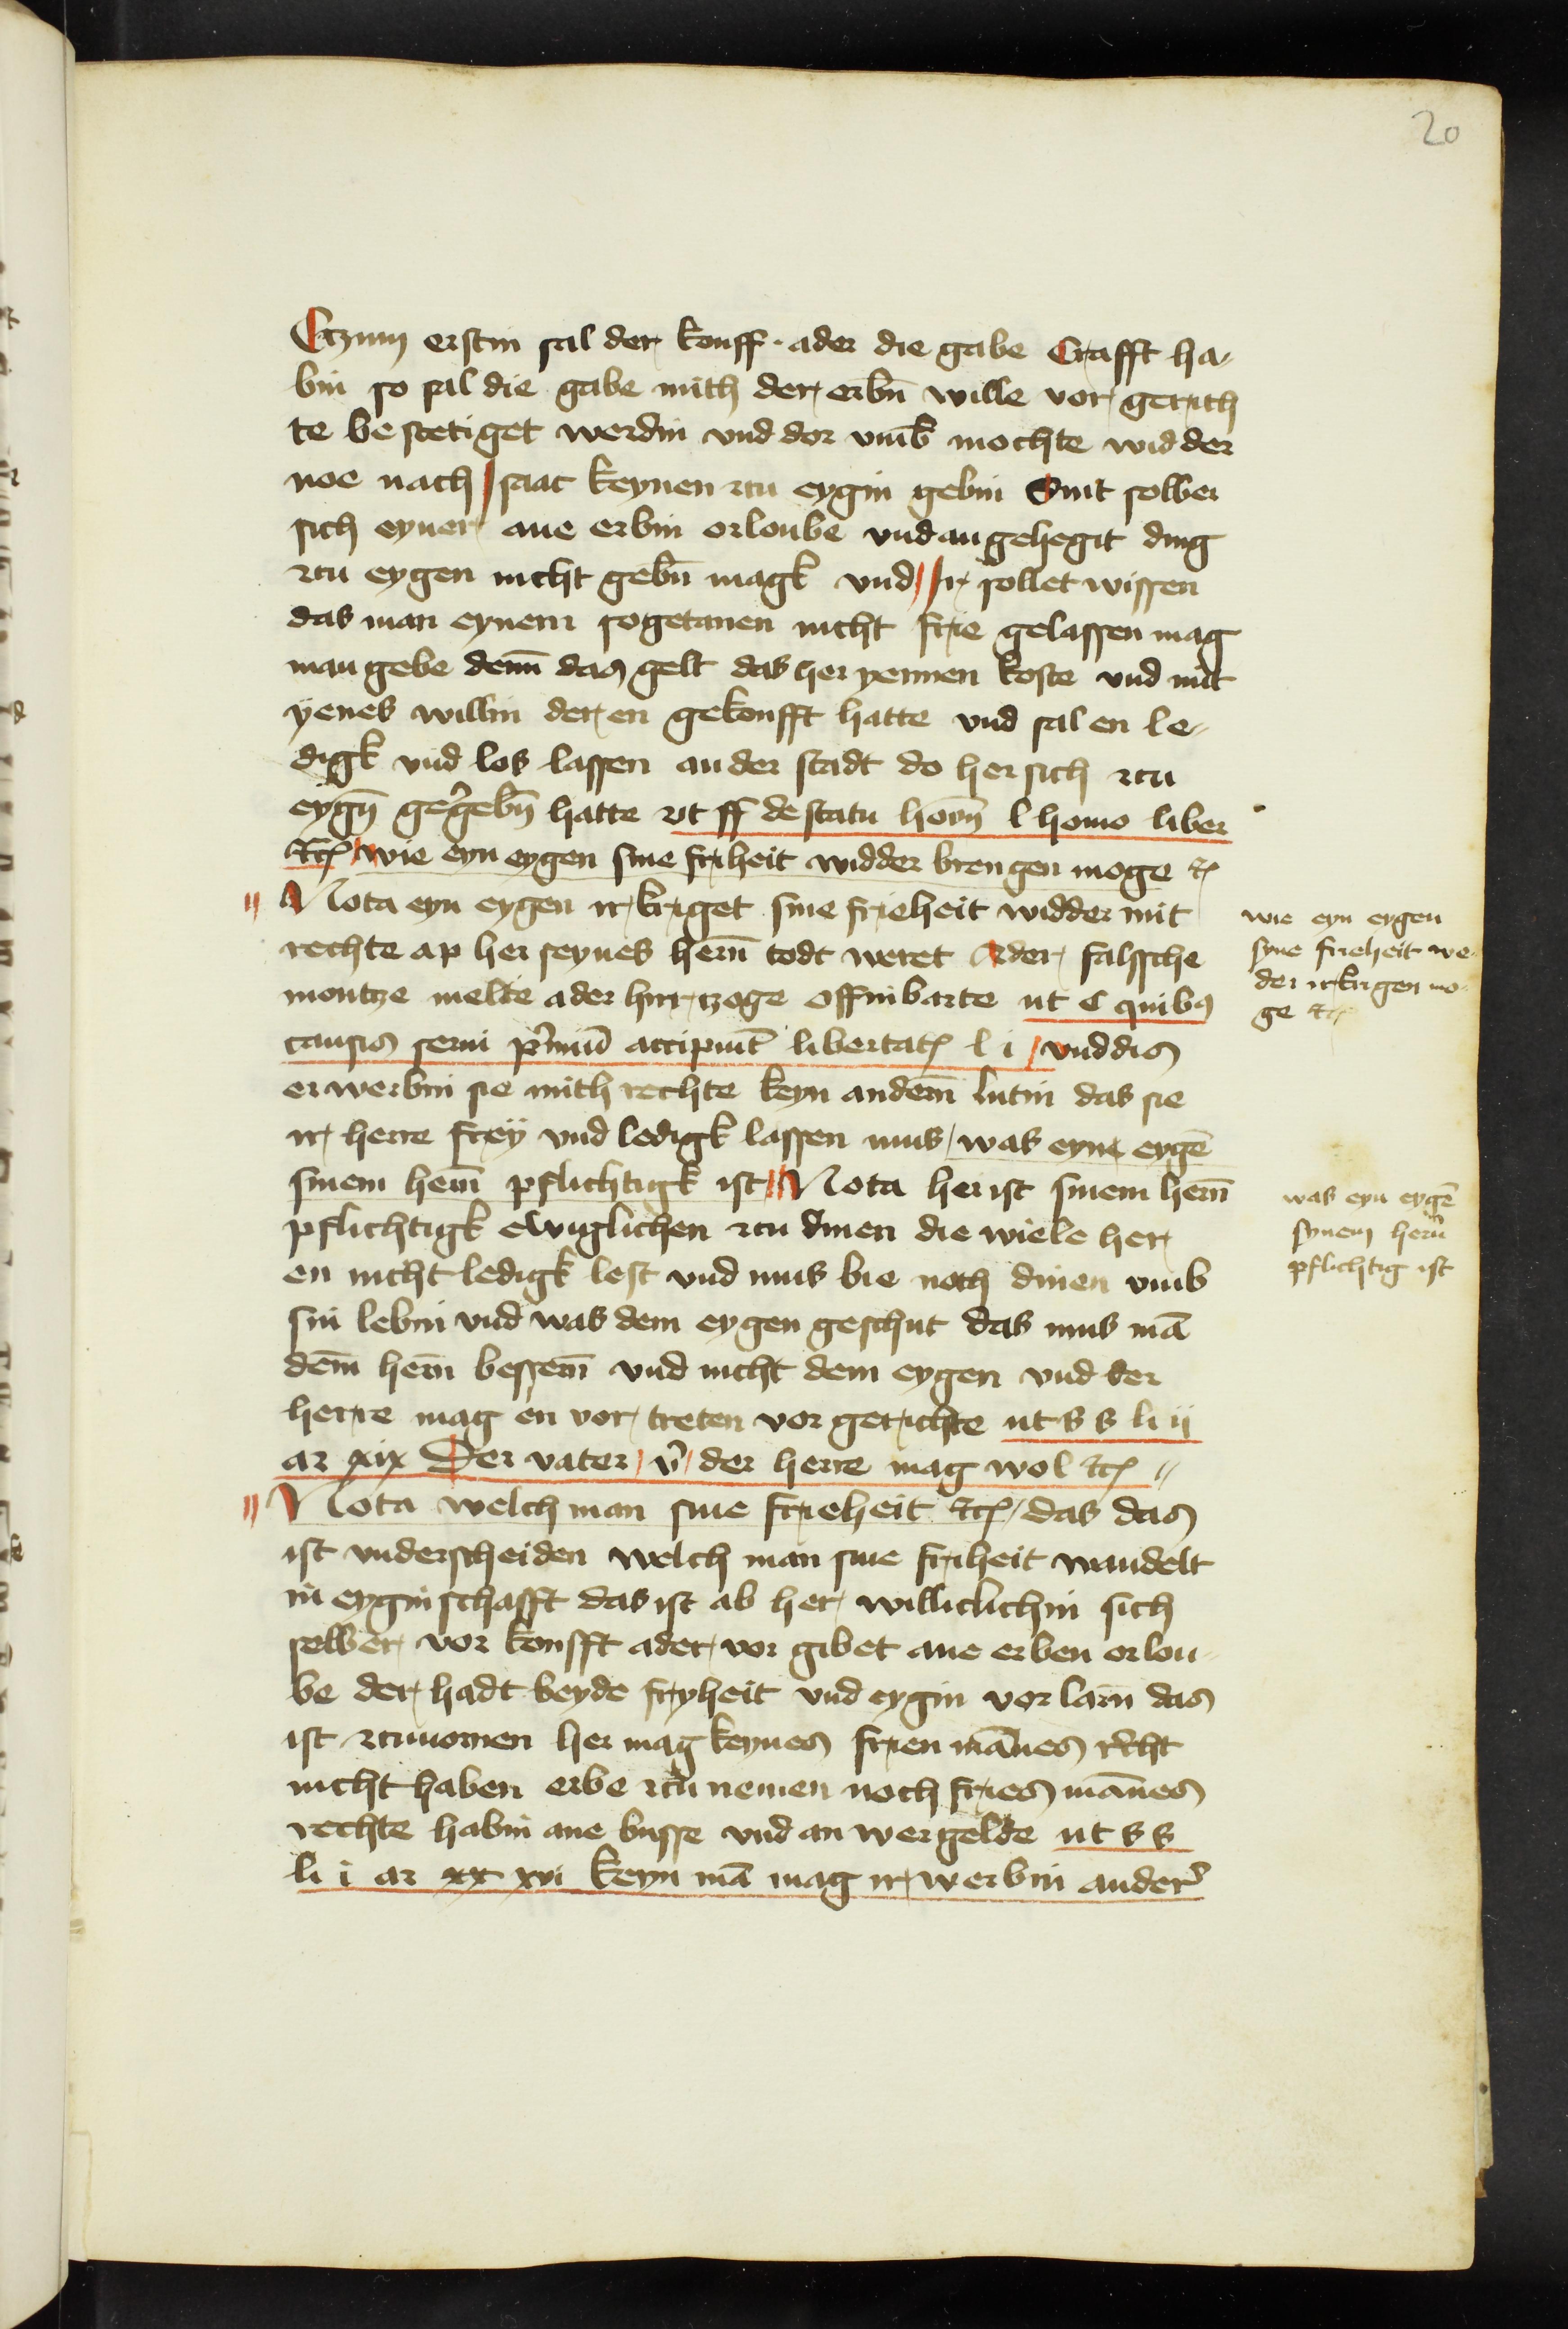 20
Ctzum erstin sal der kouff ader die gabe Crafft ha-
bin so sal die gabe mith der erbn̄ wille vor gerich
te bestetiget werdin vnd dor vm̄b mochte widder
noe nach saac keynen zcu eygin gebin Sint selber
sich eyner ane erbin orloube vnd an gehegit ding
zcu eygen nicht gebn̄ magk vnd ir sollet wissen
das man eynem sogetanen nicht frie gelassen mag
man gebe denn̄ das gelt das her yennen koste vnd mit
yenes willin der en gekoufft hatte vnd sal en le-
digk vnd los lassen an der stadt do her sich zcu
eygn̄ gegebn̄ hatte vt ff de statu hom̄ l homo liber
etc wie eyn eygen sine friheit widder brengen moge etc
Nota eyn eygen irkriget sine frieheit widder mit
rechte ap her seynes hern̄ todt weret Ader falssche
montze melde ader hirtzoge offinbarte ut C quibus
causis serui p̄miū accipiūt libertatē l i vnd dis
erwerbin sie mith rechte keyn andern̄ lutin das sie
ir herre frey vnd ledigk lassen mus was eyne eygē
sinem hern̄ pflichtigk ist Nota her ist sinem hern̄
pflichtigk ewiglichen zcu dinen die wiele her
en nicht ledigk lest vnd mus bie noth dinen vmb
sin lebin vnd was dem eygen geschut das mus mā
dem̄ hern̄ bessern̄ vnd nicht dem eygen vnd der
herre mag en vor treten vor gerichte ut s s li ij
ar xix Der vater v̄ der herre mag wol etc
Nota welch man sine frieheit etc das das
ist vnderscheiden welch man sine friheit wandelt
in eyginschafft das ist ab her williclichin sich
selber vor koufft ader vor gibet ane erben orlou-
be der hadt beyde fryheit vnd eygin vor larn̄ das
ist zcuuornen her mag keynes frien mānes recht
nicht haben erbe zcu nemen noch fries mānes
rechte habin ane busse vnd an wergelde ut s s
li i ar xx xvi keyn mā mag irwerbin ander
wie eyn eygen
syne frieheit we-
der irkrigen mo-
ge etc
was eyn eygē
synem hern̄
pflichtig ist